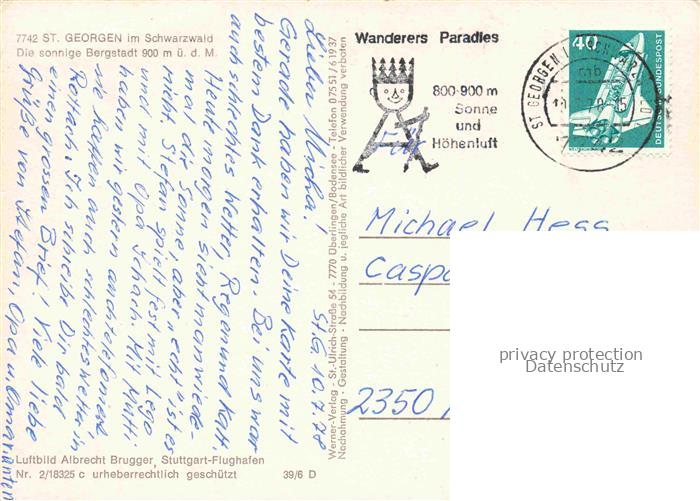 7742 ST. GEORGEN im Schwarzwald
Die sonnige Bergstadt 900 m ü. d. M.
St. G. 10.7.78
Lieber Micha!
Gerade haben wir Deine Karte mit
besten Dank erhalten. Bei uns war
auch schlechtes Wetter, Regen und kalt.
Heute morgen sieht man wieder
mal die Sonne, aber "echt" ist es
nicht. Stefan spielt fest mit Lego
und Opa Schach. Mit Mutti
haben wir gestern auch telefoniert
sie hatten auch schlechtes Wetter in
Ich schreibe Dir bald
einen grossen Brief! Viele liebe
Grüße von Stefan, Opa u. Oma
Luftbild Albrecht Brugger, Stuttgart-Flughafen
Nr. 2/18325 c urheberrechtlich geschützt
39/6 D
Werner-Verlag - St.-Ulrich-Straße 54 - 7770 Überlingen/Bodensee - Telefon 07551/61937
Nachahmung - Gestaltung - Nachbildung u. jegliche Art bildlicher Verwendung verboten
Wanderers Paradies
800-900 m
Sonne
und
Höhenluft
ST GEORGEN
7742
40
DEUTSCHE BUNDESPOST
Michael Hess
Caspa
2350
privacy protection
Datenschutz